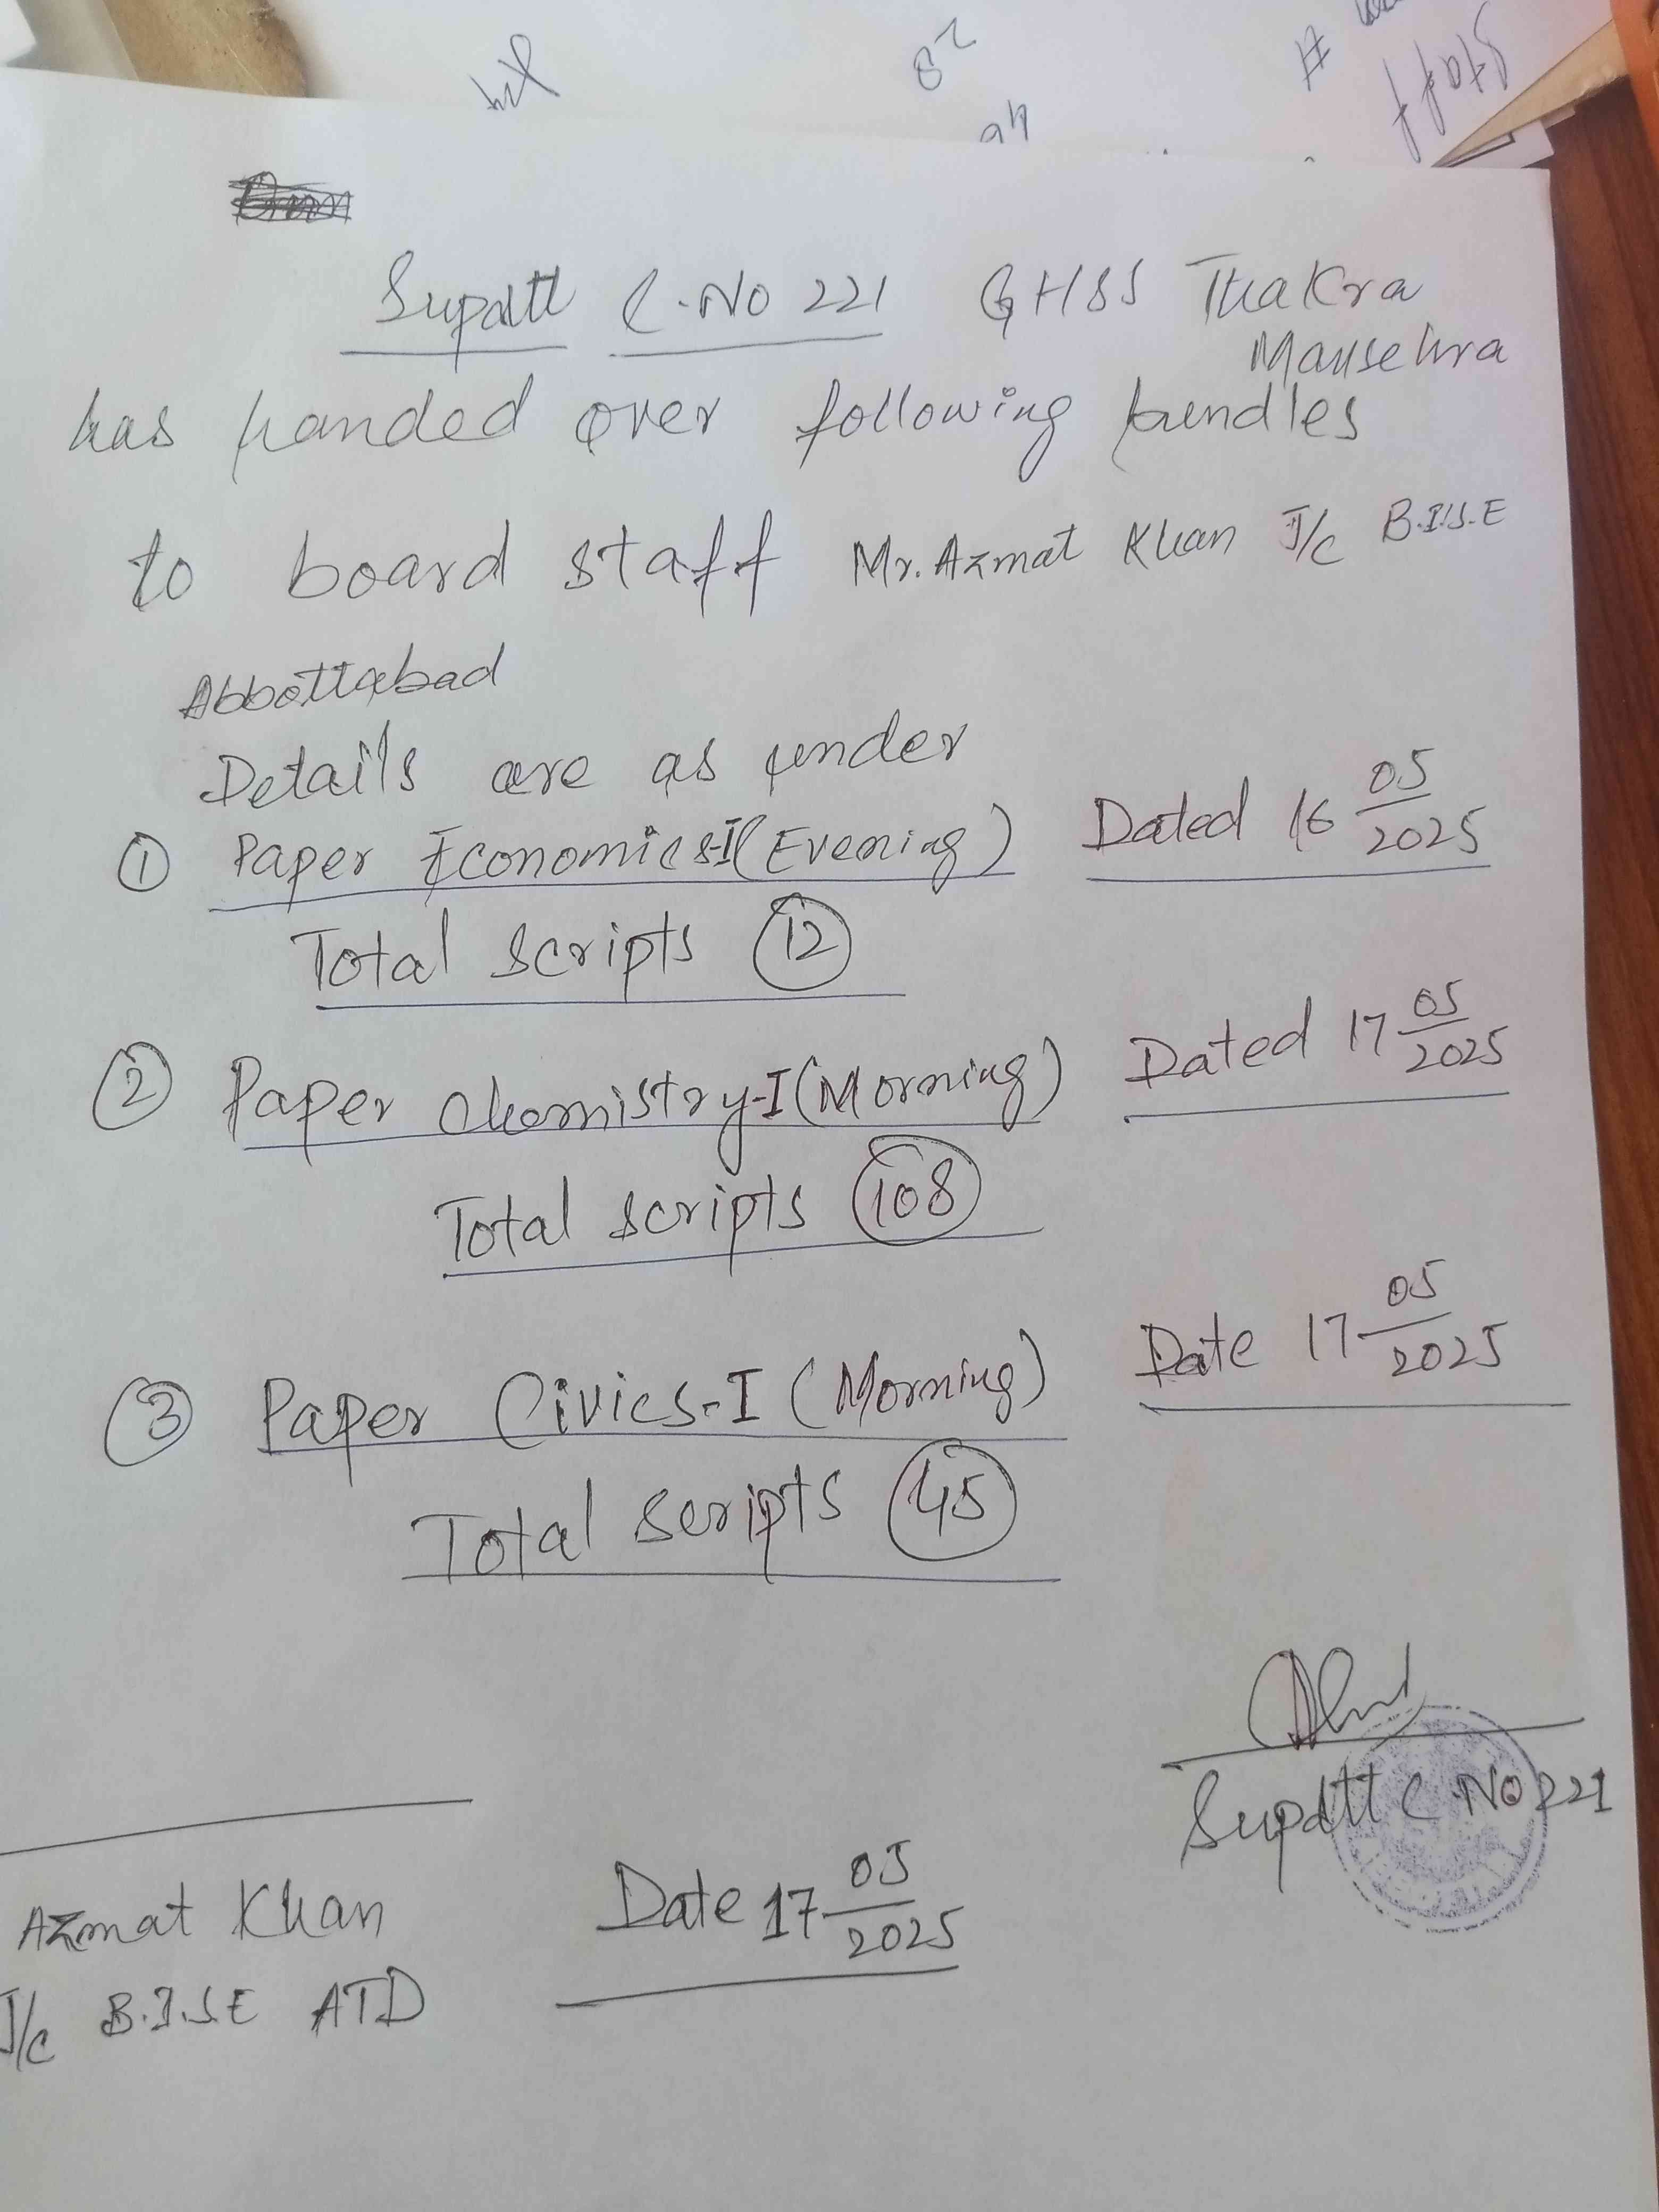 28
Staff
Supdtt C.No 221 GHSS Thakra
Mansehra
has handed over following bundles
to board staff Mr. Azmat Khan J/c B.I.S.E
Abbottabad
Details are as under
① Paper Economics-I (Evening) Dated 16 05/2025
Total Scripts 12
② Paper Chemistry-I (Morning) Dated 17 05/2025
Total Scripts 108
③ Paper Civics-I (Morning) Date 17 05/2025
Total Scripts 45
Supdtt C.No 221
Azmat Khan Date 17 05/2025
J/c B.I.S.E ATD